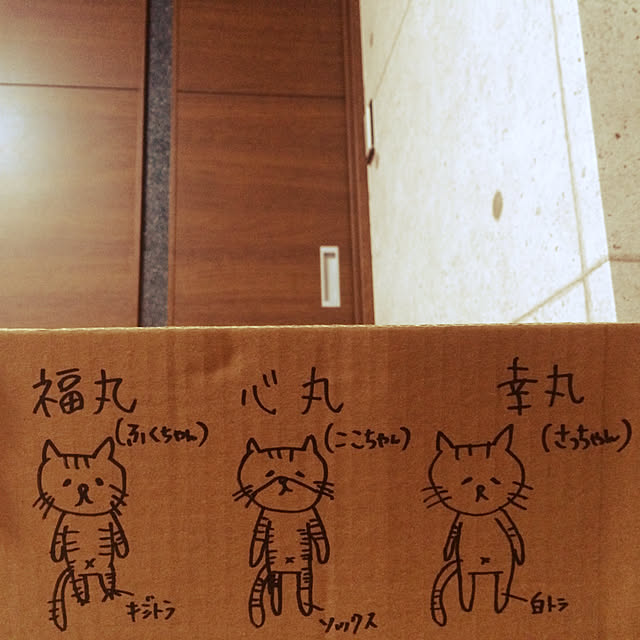 福丸
(ふくちゃん)
キジトラ
心丸
(ここちゃん)
ソックス
幸丸
(さっちゃん)
白トラ